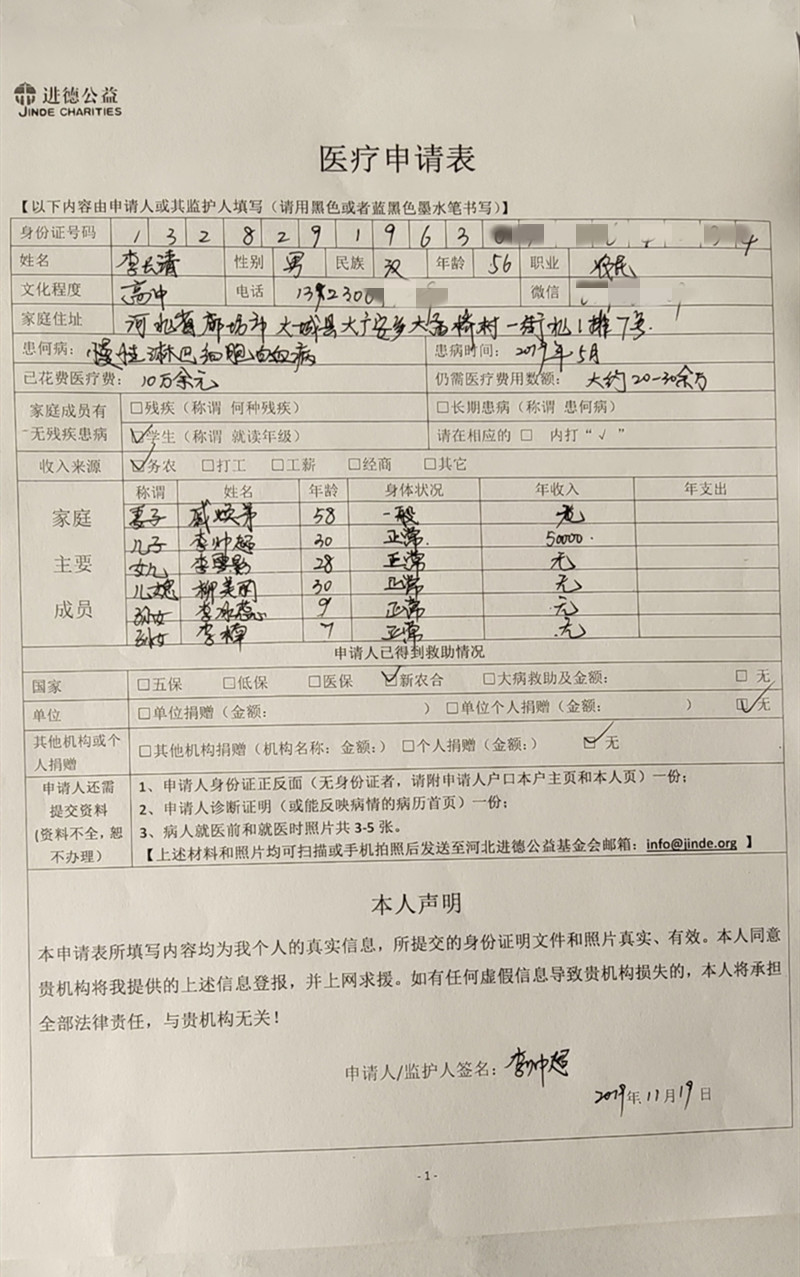 进德公益
JINDE CHARITIES
医疗申请表
【以下内容由申请人或其监护人填写（请用黑色或者蓝黑色墨水笔书写）】
身份证号码 1 3 2 8 2 9 1 9 6 3 4
姓名 李长清 性别 男 民族 汉 年龄 56 职业 农民
文化程度 高中 电话 微信
家庭住址 河北省廊坊市大城县大广安乡 村一街 1排7号
患何病：慢性淋巴细胞白血病 患病时间：2019年5月
已花费医疗费：10万余元 仍需医疗费用数额：大约20-30余万
家庭成员有无残疾患病 □残疾（称谓 何种残疾） □长期患病（称谓 患何病）
☑学生（称谓 就读年级） 请在相应的 □ 内打“√ ”
收入来源 ☑务农 □打工 □工薪 □经商 □其它
家庭主要成员 称谓 姓名 年龄 身体状况 年收入 年支出
妻子 58 一般 无
儿子 李帅超 30 正常 50000
女儿 28 正常 无
儿媳 柳美丽 30 正常 无
孙女 9 正常 无
孙女 7 正常 无
申请人已得到救助情况
国家 □五保 □低保 □医保 ☑新农合 □大病救助及金额： □ 无
单位 □单位捐赠（金额： ） □单位个人捐赠（金额： ） ☑无
其他机构或个人捐赠 □其他机构捐赠（机构名称：金额：） □个人捐赠（金额：） ☑ 无
申请人还需提交资料(资料不全，恕不办理） 1、申请人身份证正反面（无身份证者，请附申请人户口本户主页和本人页）一份；
2、申请人诊断证明（或能反映病情的病历首页）一份；
3、病人就医前和就医时照片共 3-5 张。
【上述材料和照片均可扫描或手机拍照后发送至河北进德公益基金会邮箱：info@jinde.org 】
本人声明
本申请表所填写内容均为我个人的真实信息，所提交的身份证明文件和照片真实、有效。本人同意
贵机构将我提供的上述信息登报，并上网求援。如有任何虚假信息导致贵机构损失的，本人将承担
全部法律责任，与贵机构无关！
申请人/监护人签名：李帅超
2019年11月19日
- 1 -